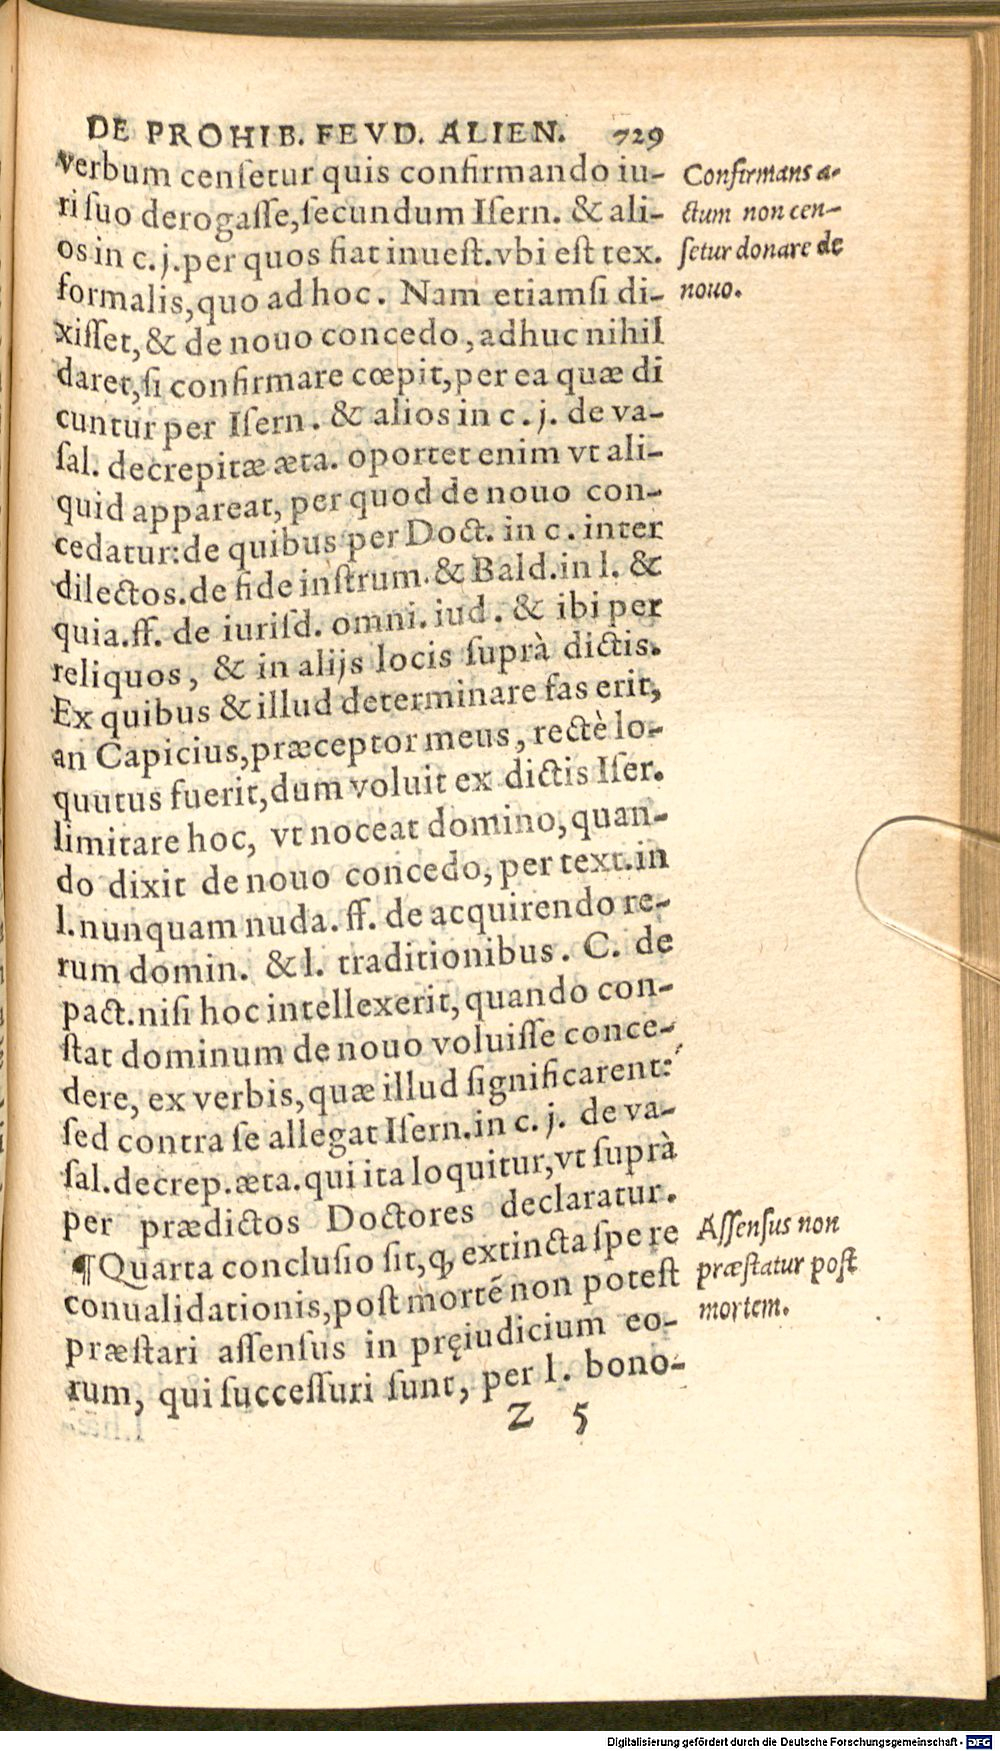 DE PROHIB. FEVD. ALIEN. 729
verbum censetur quis confirmando iu-
ri suo derogasse, secundum Isern. & ali-
os in c. j. per quos fiat inuest. vbi est tex.
formalis, quo ad hoc. Nam etiamsi di-
xisset, & de nouo concedo, adhuc nihil
daret, si confirmare cœpit, per ea quæ di
cuntur per Isern. & alios in c. j. de va-
sal. decrepitæ æta. oportet enim vt ali-
quid appareat, per quod de nouo con-
cedatur: de quibus per Doct. in c. inter
dilectos. de fide instrum. & Bald. in l. &
quia. ff. de iurisd. omni. iud. & ibi per
reliquos, & in alijs locis suprà dictis.
Ex quibus & illud determinare fas erit,
an Capicius, præceptor meus, rectè lo-
quutus fuerit, dum voluit ex dictis Iser.
limitare hoc, vt noceat domino, quan-
do dixit de nouo concedo, per text. in
l. nunquam nuda. ff. de acquirendo re-
rum domin. & l. traditionibus. C. de
pact. nisi hoc intellexerit, quando con-
stat dominum de nouo voluisse conce-
dere, ex verbis, quæ illud significarent:
sed contra se allegat Isern. in c. j. de va-
sal. decrep. æta. qui ita loquitur, vt suprà
per prædictos Doctores declaratur.
¶ Quarta conclusio sit, ꝙ extincta spe re
conualidationis, post mortē non potest
præstari assensus in pręiudicium eo-
rum, qui successuri sunt, per l. bono-
Z 5
Confirmans a-
ctum non cen-
setur donare de
nouo.
Assensus non
præstatur post
mortem.
Digitalisierung gefördert durch die Deutsche Forschungsgemeinschaft - DFG